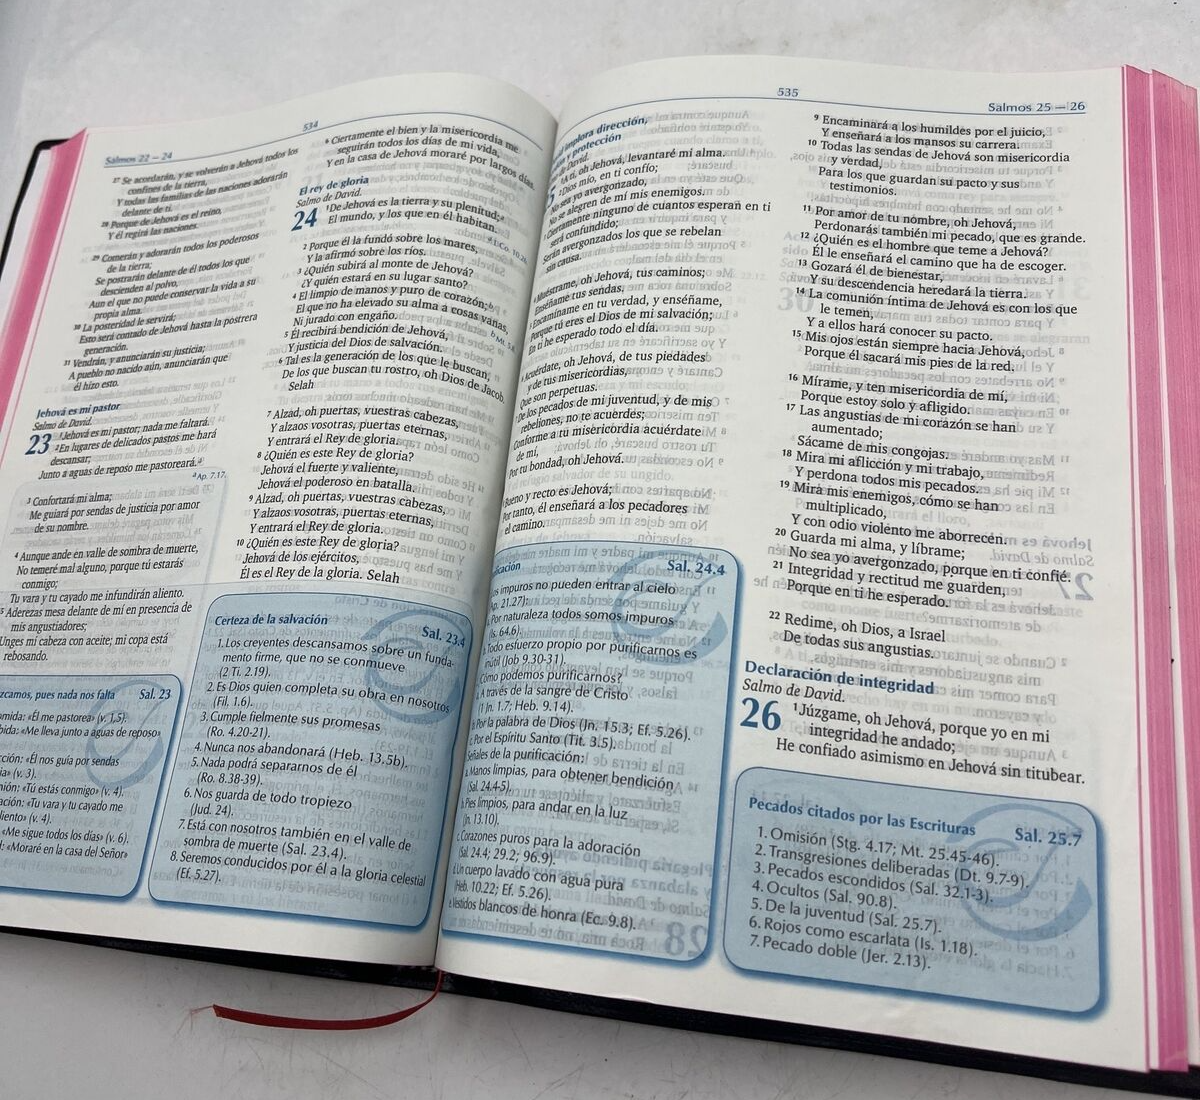 534
Salmos 22 — 24
27 Se acordarán, y se volverán a Jehová todos los
confines de la tierra,
Y todas las familias de las naciones adorarán
delante de ti.
28 Porque de Jehová es el reino,
Y él regirá las naciones.
29 Comerán y adorarán todos los poderosos
de la tierra;
Se postrarán delante de él todos los que
descienden al polvo,
Aun el que no puede conservar la vida a su
propia alma.
30 La posteridad le servirá;
Esto será contado de Jehová hasta la postrera
generación.
31 Vendrán, y anunciarán su justicia;
A pueblo no nacido aún, anunciarán que
él hizo esto.
Jehová es mi pastor
Salmo de David.
23 1 Jehová es mi pastor; nada me faltará.
2 En lugares de delicados pastos me hará
descansar;
Junto a aguas de reposo me pastoreará.a
a Ap. 7.17.
3 Confortará mi alma;
Me guiará por sendas de justicia por amor
de su nombre.
4 Aunque ande en valle de sombra de muerte,
No temeré mal alguno, porque tú estarás
conmigo;
Tu vara y tu cayado me infundirán aliento.
5 Aderezas mesa delante de mí en presencia de
mis angustiadores;
Unges mi cabeza con aceite; mi copa está
rebosando.
pues nada nos falta Sal. 23
«Él me pastorea» (v. 1,5).
«Me lleva junto a aguas de reposo»
«Él nos guía por sendas
(v. 3).
«Tú estás conmigo» (v. 4).
«Tu vara y tu cayado me
(v. 4).
«Me sigue todos los días» (v. 6).
«Moraré en la casa del Señor»
6 Ciertamente el bien y la misericordia me
seguirán todos los días de mi vida,
Y en la casa de Jehová moraré por largos días.
El rey de gloria
Salmo de David.
24 1 De Jehová es la tierra y su plenitud;a
El mundo, y los que en él habitan.
a 1 Co. 10.26.
2 Porque él la fundó sobre los mares,
Y la afirmó sobre los ríos.
3 ¿Quién subirá al monte de Jehová?
¿Y quién estará en su lugar santo?
4 El limpio de manos y puro de corazón;b
El que no ha elevado su alma a cosas vanas,
Ni jurado con engaño.
b Mt. 5.8.
5 Él recibirá bendición de Jehová,
Y justicia del Dios de salvación.
6 Tal es la generación de los que le buscan,
De los que buscan tu rostro, oh Dios de Jacob.
Selah
7 Alzad, oh puertas, vuestras cabezas,
Y alzaos vosotras, puertas eternas,
Y entrará el Rey de gloria.
8 ¿Quién es este Rey de gloria?
Jehová el fuerte y valiente,
Jehová el poderoso en batalla.
9 Alzad, oh puertas, vuestras cabezas,
Y alzaos vosotras, puertas eternas,
Y entrará el Rey de gloria.
10 ¿Quién es este Rey de gloria?
Jehová de los ejércitos,
Él es el Rey de la gloria. Selah
Certeza de la salvación Sal. 23.4
1. Los creyentes descansamos sobre un funda-
mento firme, que no se conmueve
(2 Ti. 2.19).
2. Es Dios quien completa su obra en nosotros
(Fil. 1.6).
3. Cumple fielmente sus promesas
(Ro. 4.20-21).
4. Nunca nos abandonará (Heb. 13.5b).
5. Nada podrá separarnos de él
(Ro. 8.38-39).
6. Nos guarda de todo tropiezo
(Jud. 24).
7. Está con nosotros también en el valle de
sombra de muerte (Sal. 23.4).
8. Seremos conducidos por él a la gloria celestial
(Ef. 5.27).
535
Salmos 25 — 26
implora dirección,
y protección
de David.
A ti, oh Jehová, levantaré mi alma.
Dios mío, en ti confío;
No sea yo avergonzado,
No se alegren de mí mis enemigos.
Ciertamente ninguno de cuantos esperan en ti
será confundido;
Serán avergonzados los que se rebelan
sin causa.
Muéstrame, oh Jehová, tus caminos;
Enséñame tus sendas.
Encamíname en tu verdad, y enséñame,
Porque tú eres el Dios de mi salvación;
En ti he esperado todo el día.
Acuérdate, oh Jehová, de tus piedades
y de tus misericordias,
Que son perpetuas.
De los pecados de mi juventud, y de mis
rebeliones, no te acuerdes;
Conforme a tu misericordia acuérdate
de mí,
Por tu bondad, oh Jehová.
Bueno y recto es Jehová;
Por tanto, él enseñará a los pecadores
el camino.
Sal. 24.4
Los impuros no pueden entrar al cielo
(Ap. 21.27):
Por naturaleza todos somos impuros
(Is. 64.6).
Todo esfuerzo propio por purificarnos es
inútil (Job 9.30-31).
¿Cómo podemos purificarnos?
A través de la sangre de Cristo
(1 Jn. 1.7; Heb. 9.14).
Por la palabra de Dios (Jn. 15.3; Ef. 5.26).
Por el Espíritu Santo (Tit. 3.5).
Señales de la purificación:
Manos limpias, para obtener bendición
(Sal. 24.4-5).
Pies limpios, para andar en la luz
(Jn. 13.10).
Corazones puros para la adoración
(Sal. 24.4; 29.2; 96.9).
Un cuerpo lavado con agua pura
(Heb. 10.22; Ef. 5.26).
Vestidos blancos de honra (Ec. 9.8).
9 Encaminará a los humildes por el juicio,
Y enseñará a los mansos su carrera.
10 Todas las sendas de Jehová son misericordia
y verdad,
Para los que guardan su pacto y sus
testimonios.
11 Por amor de tu nombre, oh Jehová,
Perdonarás también mi pecado, que es grande.
12 ¿Quién es el hombre que teme a Jehová?
Él le enseñará el camino que ha de escoger.
13 Gozará él de bienestar,
Y su descendencia heredará la tierra.
14 La comunión íntima de Jehová es con los que
le temen,
Y a ellos hará conocer su pacto.
15 Mis ojos están siempre hacia Jehová,
Porque él sacará mis pies de la red.
16 Mírame, y ten misericordia de mí,
Porque estoy solo y afligido.
17 Las angustias de mi corazón se han
aumentado;
Sácame de mis congojas.
18 Mira mi aflicción y mi trabajo,
Y perdona todos mis pecados.
19 Mira mis enemigos, cómo se han
multiplicado,
Y con odio violento me aborrecen.
20 Guarda mi alma, y líbrame;
No sea yo avergonzado, porque en ti confié.
21 Integridad y rectitud me guarden,
Porque en ti he esperado.
22 Redime, oh Dios, a Israel
De todas sus angustias.
Declaración de integridad
Salmo de David.
26 1 Júzgame, oh Jehová, porque yo en mi
integridad he andado;
He confiado asimismo en Jehová sin titubear.
Pecados citados por las Escrituras Sal. 25.7
1. Omisión (Stg. 4.17; Mt. 25.45-46).
2. Transgresiones deliberadas (Dt. 9.7-9).
3. Pecados escondidos (Sal. 32.1-3).
4. Ocultos (Sal. 90.8).
5. De la juventud (Sal. 25.7).
6. Rojos como escarlata (Is. 1.18).
7. Pecado doble (Jer. 2.13).